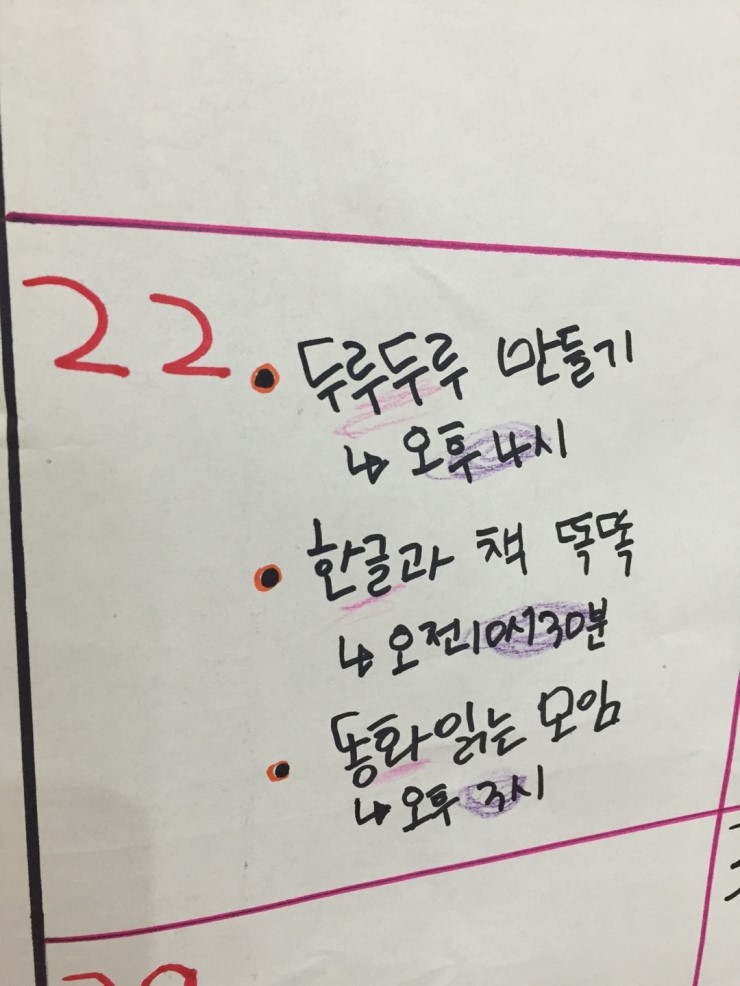 22
두루두루 만들기
↳ 오후 4시
한글과 책 똑똑
↳ 오전 10시30분
동화읽는 모임
↳ 오후 3시